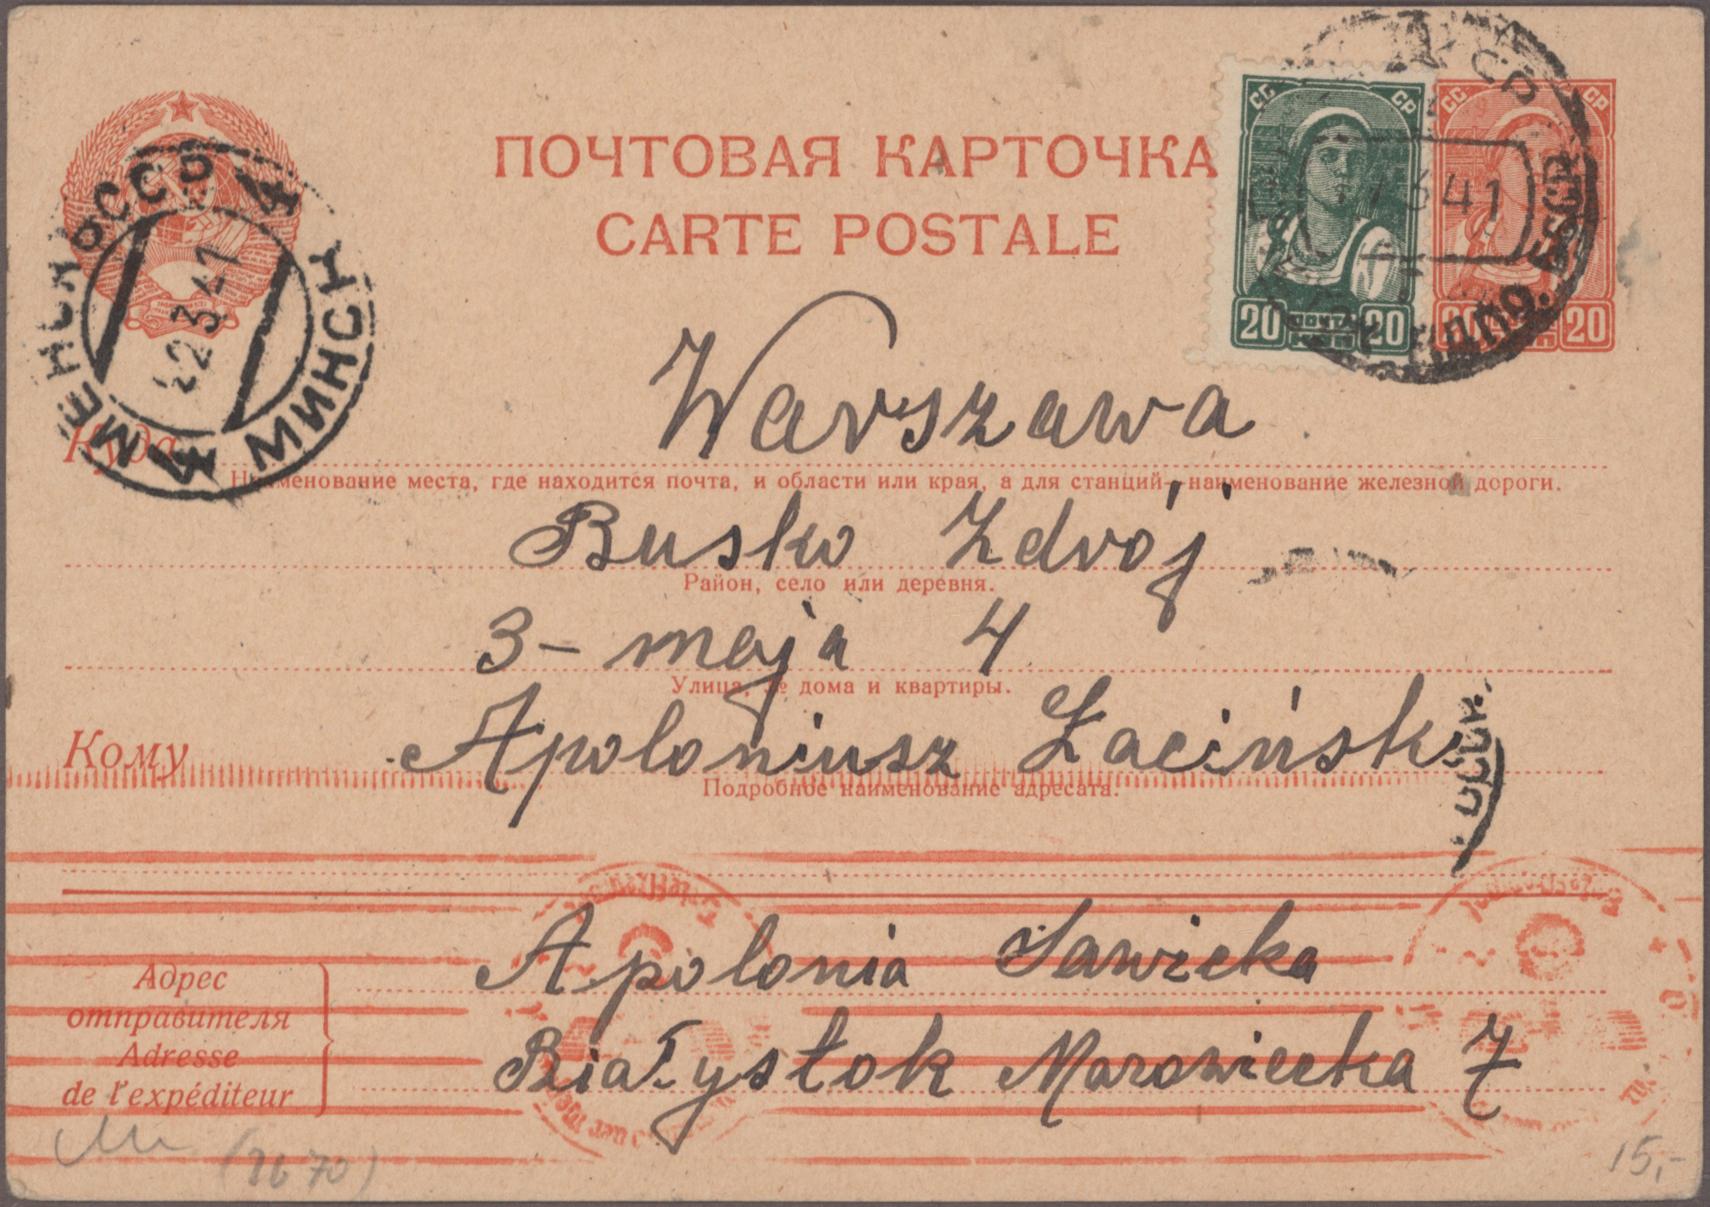 ПОЧТОВАЯ КАРТОЧКА
CARTE POSTALE
СС СР
20 ПОЧТА 20
СС СР
20
МЕНСК БССР 4
22 3 41
4 МИНСК
41
БССР
Куда
Warszawa
Наименование места, где находится почта, и области или края, а для станций—наименование железной дороги.
Busko Zdrój
Район, село или деревня.
3 - maja 4
Улица, № дома и квартиры.
Кому
Apoloniusz Łaciński
Подробное наименование адресата.
Адрес
отправителя
Adresse
de l'expéditeur
Apolonia Sawicka
Białystok Mazowiecka 7
15,-